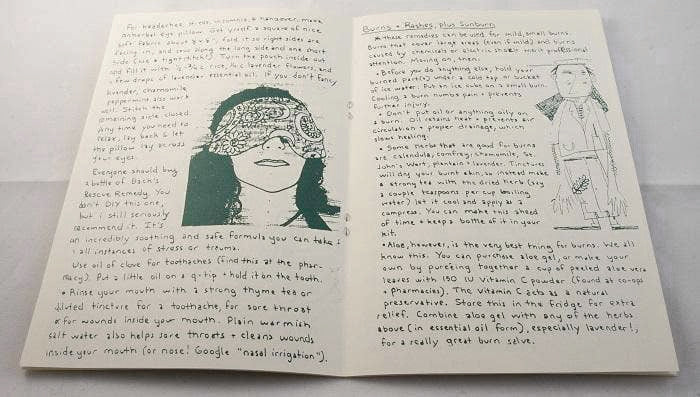 For headaches, stress, insomnia, & hangover, make
an herbal eye pillow. Get yrself a square of nice
soft fabric about 8"x8", fold it so right sides are
facing in, and sew along the long side and one short
side (use a tight stitch!) Turn the pouch inside out
and fill it with rice, lavender flowers, and
a few drops of lavender essential oil. If you don't fancy
lavender, chamomile,
peppermint also work
Stitch the
remaining side closed.
Any time you need to
relax, lay back & let
the pillow lay across
your eyes.
Everyone should buy
a bottle of Bach's
Rescue Remedy. You
don't DIY this one,
but i still seriously
recommend it. It's
an incredibly soothing and safe formula you can take
all instances of stress or trauma.
Use oil of clove for toothaches (find this at the phar-
macy). Put a little oil on a q-tip + hold it on the tooth.
• Rinse your mouth with a strong thyme tea or
diluted tincture for a toothache, for sore throat
or for wounds inside your mouth. Plain warmish
salt water also helps sore throats + cleans wounds
inside your mouth (or nose! Google "nasal irrigation").
Burns + Rashes, plus Sunburn
• these remedies can be used for mild, small burns.
Burns that cover large areas (even if mild) and burns
caused by chemicals or electric shock need professional
attention. Moving on, then.
• Before you do anything else, hold your
burned part(s) under a cold tap or bucket
of ice water. Put an ice cube on a small burn.
Cooling a burn numbs pain + prevents
further injury.
• Don't put oil or anything oily on
a burn. Oil retains heat + prevents air
circulation + proper drainage, which
slows healing.
• Some herbs that are good for burns
are calendula, comfrey, chamomile, St.
John's Wort, plantain + lavender. Tinctures
will dry your burnt skin, so instead make
a strong tea with the dried herb (say
a couple teaspoons per cup boiling
water) let it cool and apply as a
compress. You can make this ahead
of time + keep a bottle of it in your
kit.
• Aloe, however, is the very best thing for burns. We all
know this. You can purchase aloe gel, or make your
own by pureeing together a cup of peeled aloe vera
leaves with 150 IU Vitamin C powder (found at co-ops
+ pharmacies). The Vitamin C acts as a natural
preservative. Store this in the fridge for extra
relief. Combine aloe gel with any of the herbs
above (in essential oil form), especially lavender!,
for a really great burn salve.